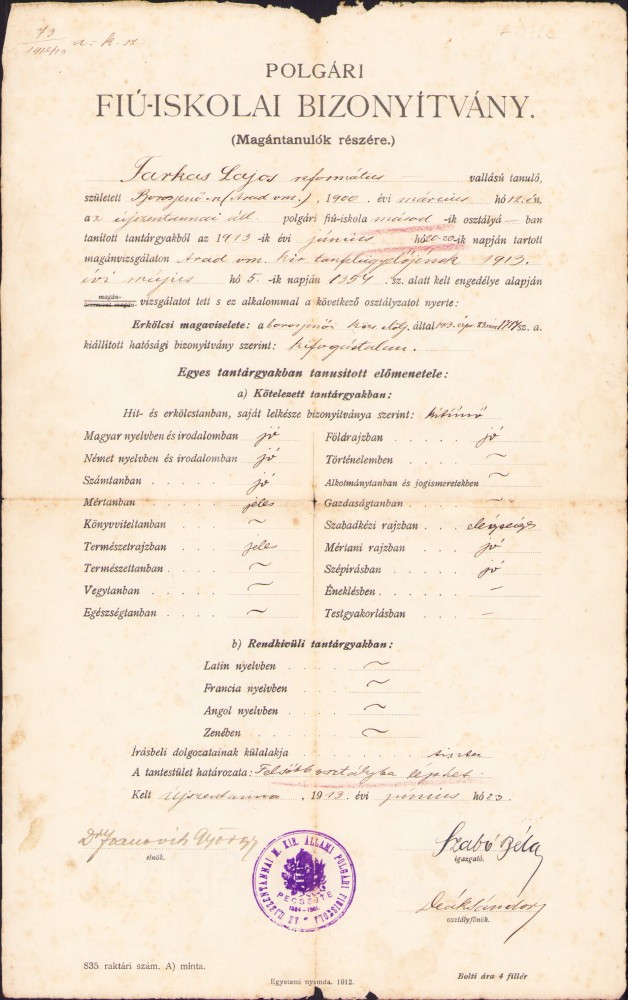 73
1912/13
POLGÁRI
FIÚ-ISKOLAI BIZONYÍTVÁNY.
(Magántanulók részére.)
Farkas Lajos református vallású tanuló,
született Borosjenő-n (Arad vm.), 1900. évi március hó 12.én,
az újszentannai áll. polgári fiú-iskola másod -ik osztályá — ban
tanított tantárgyakból az 1913 -ik évi június hó 20-20-ik napján tartott
magánvizsgálaton Arad vm. kir. tanfelügyelőjének 1913.
évi május hó 5. -ik napján 1354 .sz. alatt kelt engedélye alapján
magán-
vizsgálatot tett s ez alkalommal a következő osztályzatot nyerte:
Erkölcsi magaviselete: a borosjenői közs. elölj. által 1913. ápr. 23. sz. a.
kiállított hatósági bizonyítvány szerint: kifogástalan.
Egyes tantárgyakban tanusított előmenetele:
a) Kötelezett tantárgyakban:
Hit- és erkölcstanban, saját lelkésze bizonyítványa szerint: kitűnő
Magyar nyelvben és irodalomban jó
Német nyelvben és irodalomban jó
Számtanban jó
Mértanban jeles
Könyvviteltanban ~
Természetrajzban jeles
Természettanban ~
Vegytanban ~
Egészségtanban ~
Földrajzban jó
Történelemben ~
Alkotmánytanban és jogismeretekben ~
Gazdaságtanban ~
Szabadkézi rajzban elégséges
Mértani rajzban jó
Szépírásban jó
Éneklésben —
Testgyakorlásban —
b) Rendkívüli tantárgyakban:
Latin nyelvben ~
Francia nyelvben ~
Angol nyelvben ~
Zenében ~
Írásbeli dolgozatainak külalakja tiszta
A tantestület határozata: Felsőbb osztályba léphet.
Kelt Újszentanna , 1913. évi június hó 23.
Dr Ivanovich György
elnök.
Szabó Béla
igazgató.
Deák Sándor
osztályfőnök.
AZ ÚJSZENTANNAI M. KIR. ÁLLAMI POLGÁRI FIUISKOLA
PECSÉTE
835. raktári szám. A) minta.
Egyetemi nyomda. 1912.
Bolti ára 4 fillér